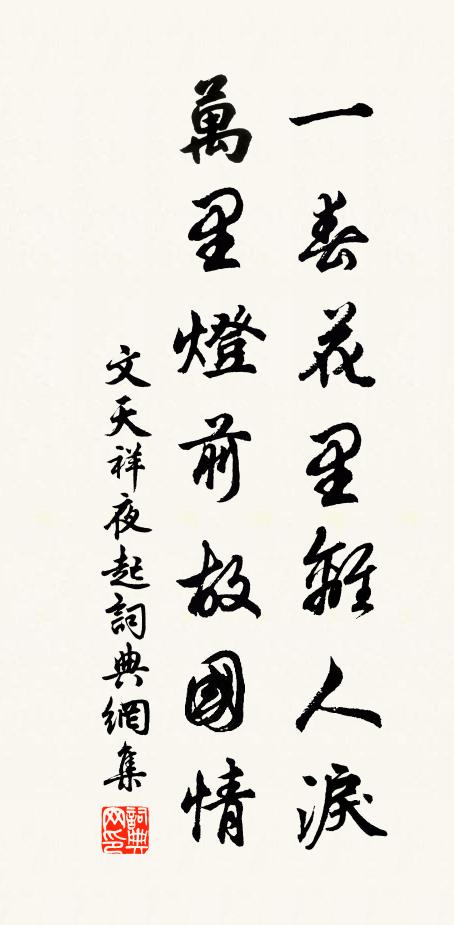 一春花里離人淚
萬里燈前故國情
文天祥夜起詞典網集
詞典網印